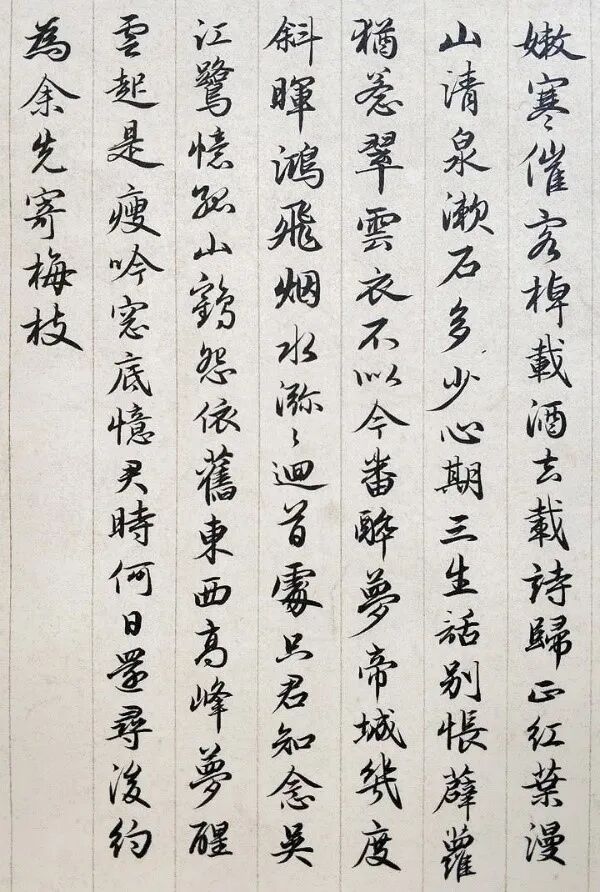 嫩寒催客棹載酒去載詩歸正紅葉漫
山清泉漱石多少心期三生話别悵薜蘿
猶惹翠雲衣不以今番醉夢帝城幾度
斜暉鴻飛烟水瀰〻迴首處只君知念吴
江鷺憶孤山鶴怨依舊東西高峰夢醒
雲起是瘦吟窓底憶君時何日還尋後約
為余先寄梅枝